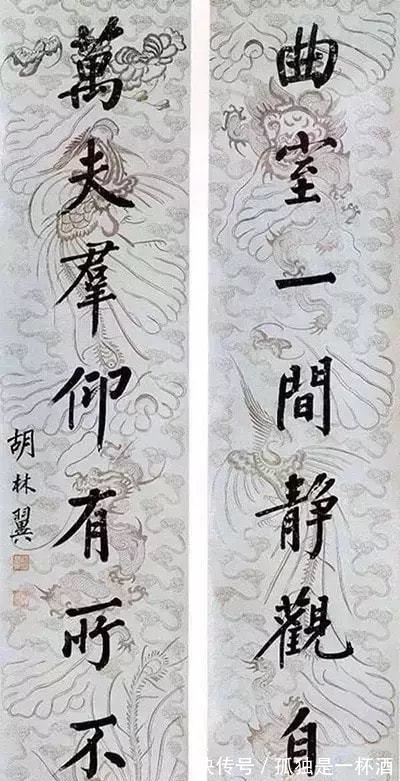 曲室一間靜觀自
萬夫羣仰有所不
胡林翼
快传号/孤独是一杯酒